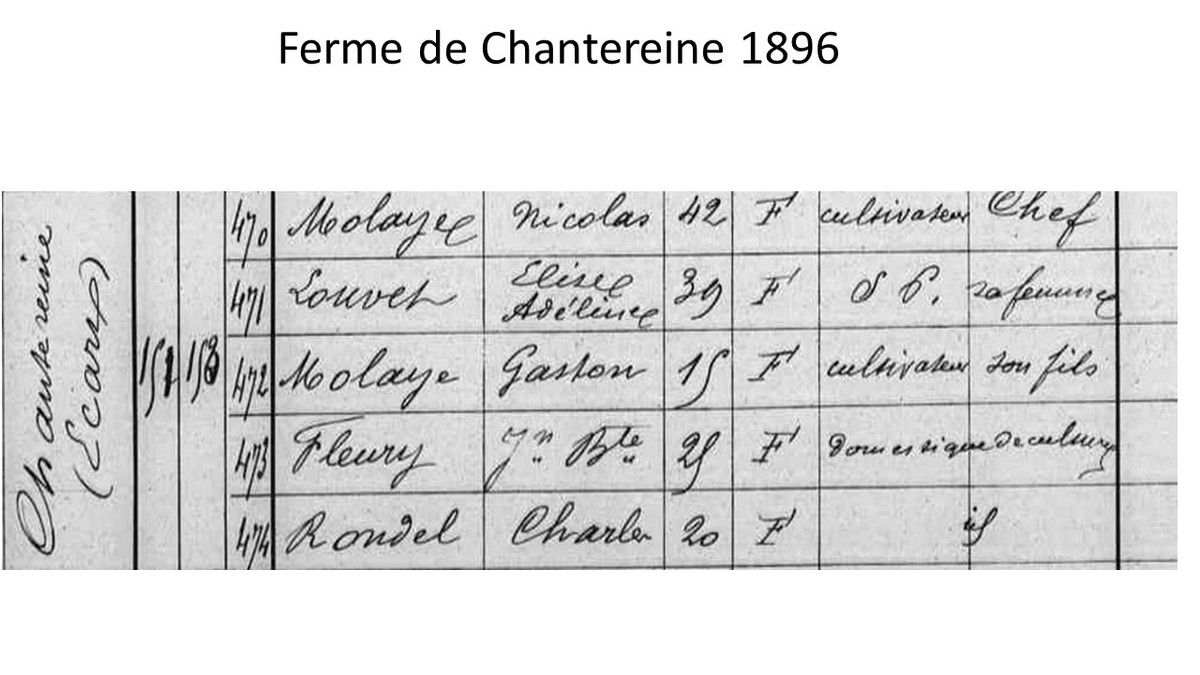 Ferme de Chantereine 1896
Chantereine
(Ecarts)
151 158
470 Molayee Nicolas 42 F cultivateur Chef
471 Louvet Elise Adéline 39 F S P. sa femme
472 Molaye Gaston 15 F cultivateur son fils
473 Fleury Jn Bte 25 F Domestique de culture
474 Rondel Charles 20 F id